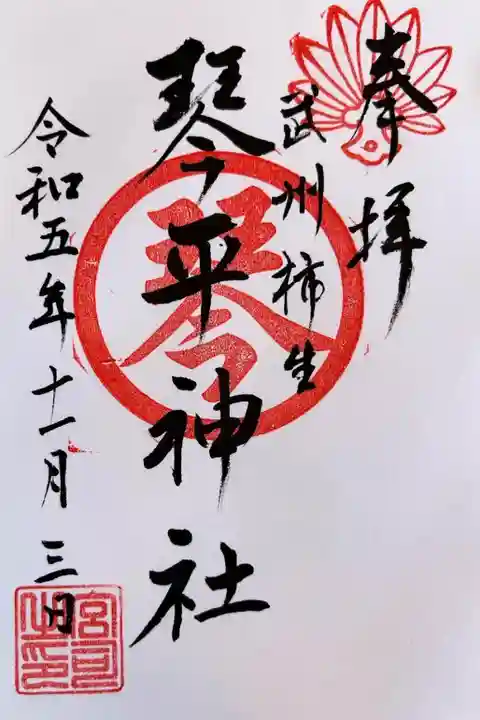 奉拝
武州柿生
琴平神社
琴
令和五年十一月三日
宮司之印